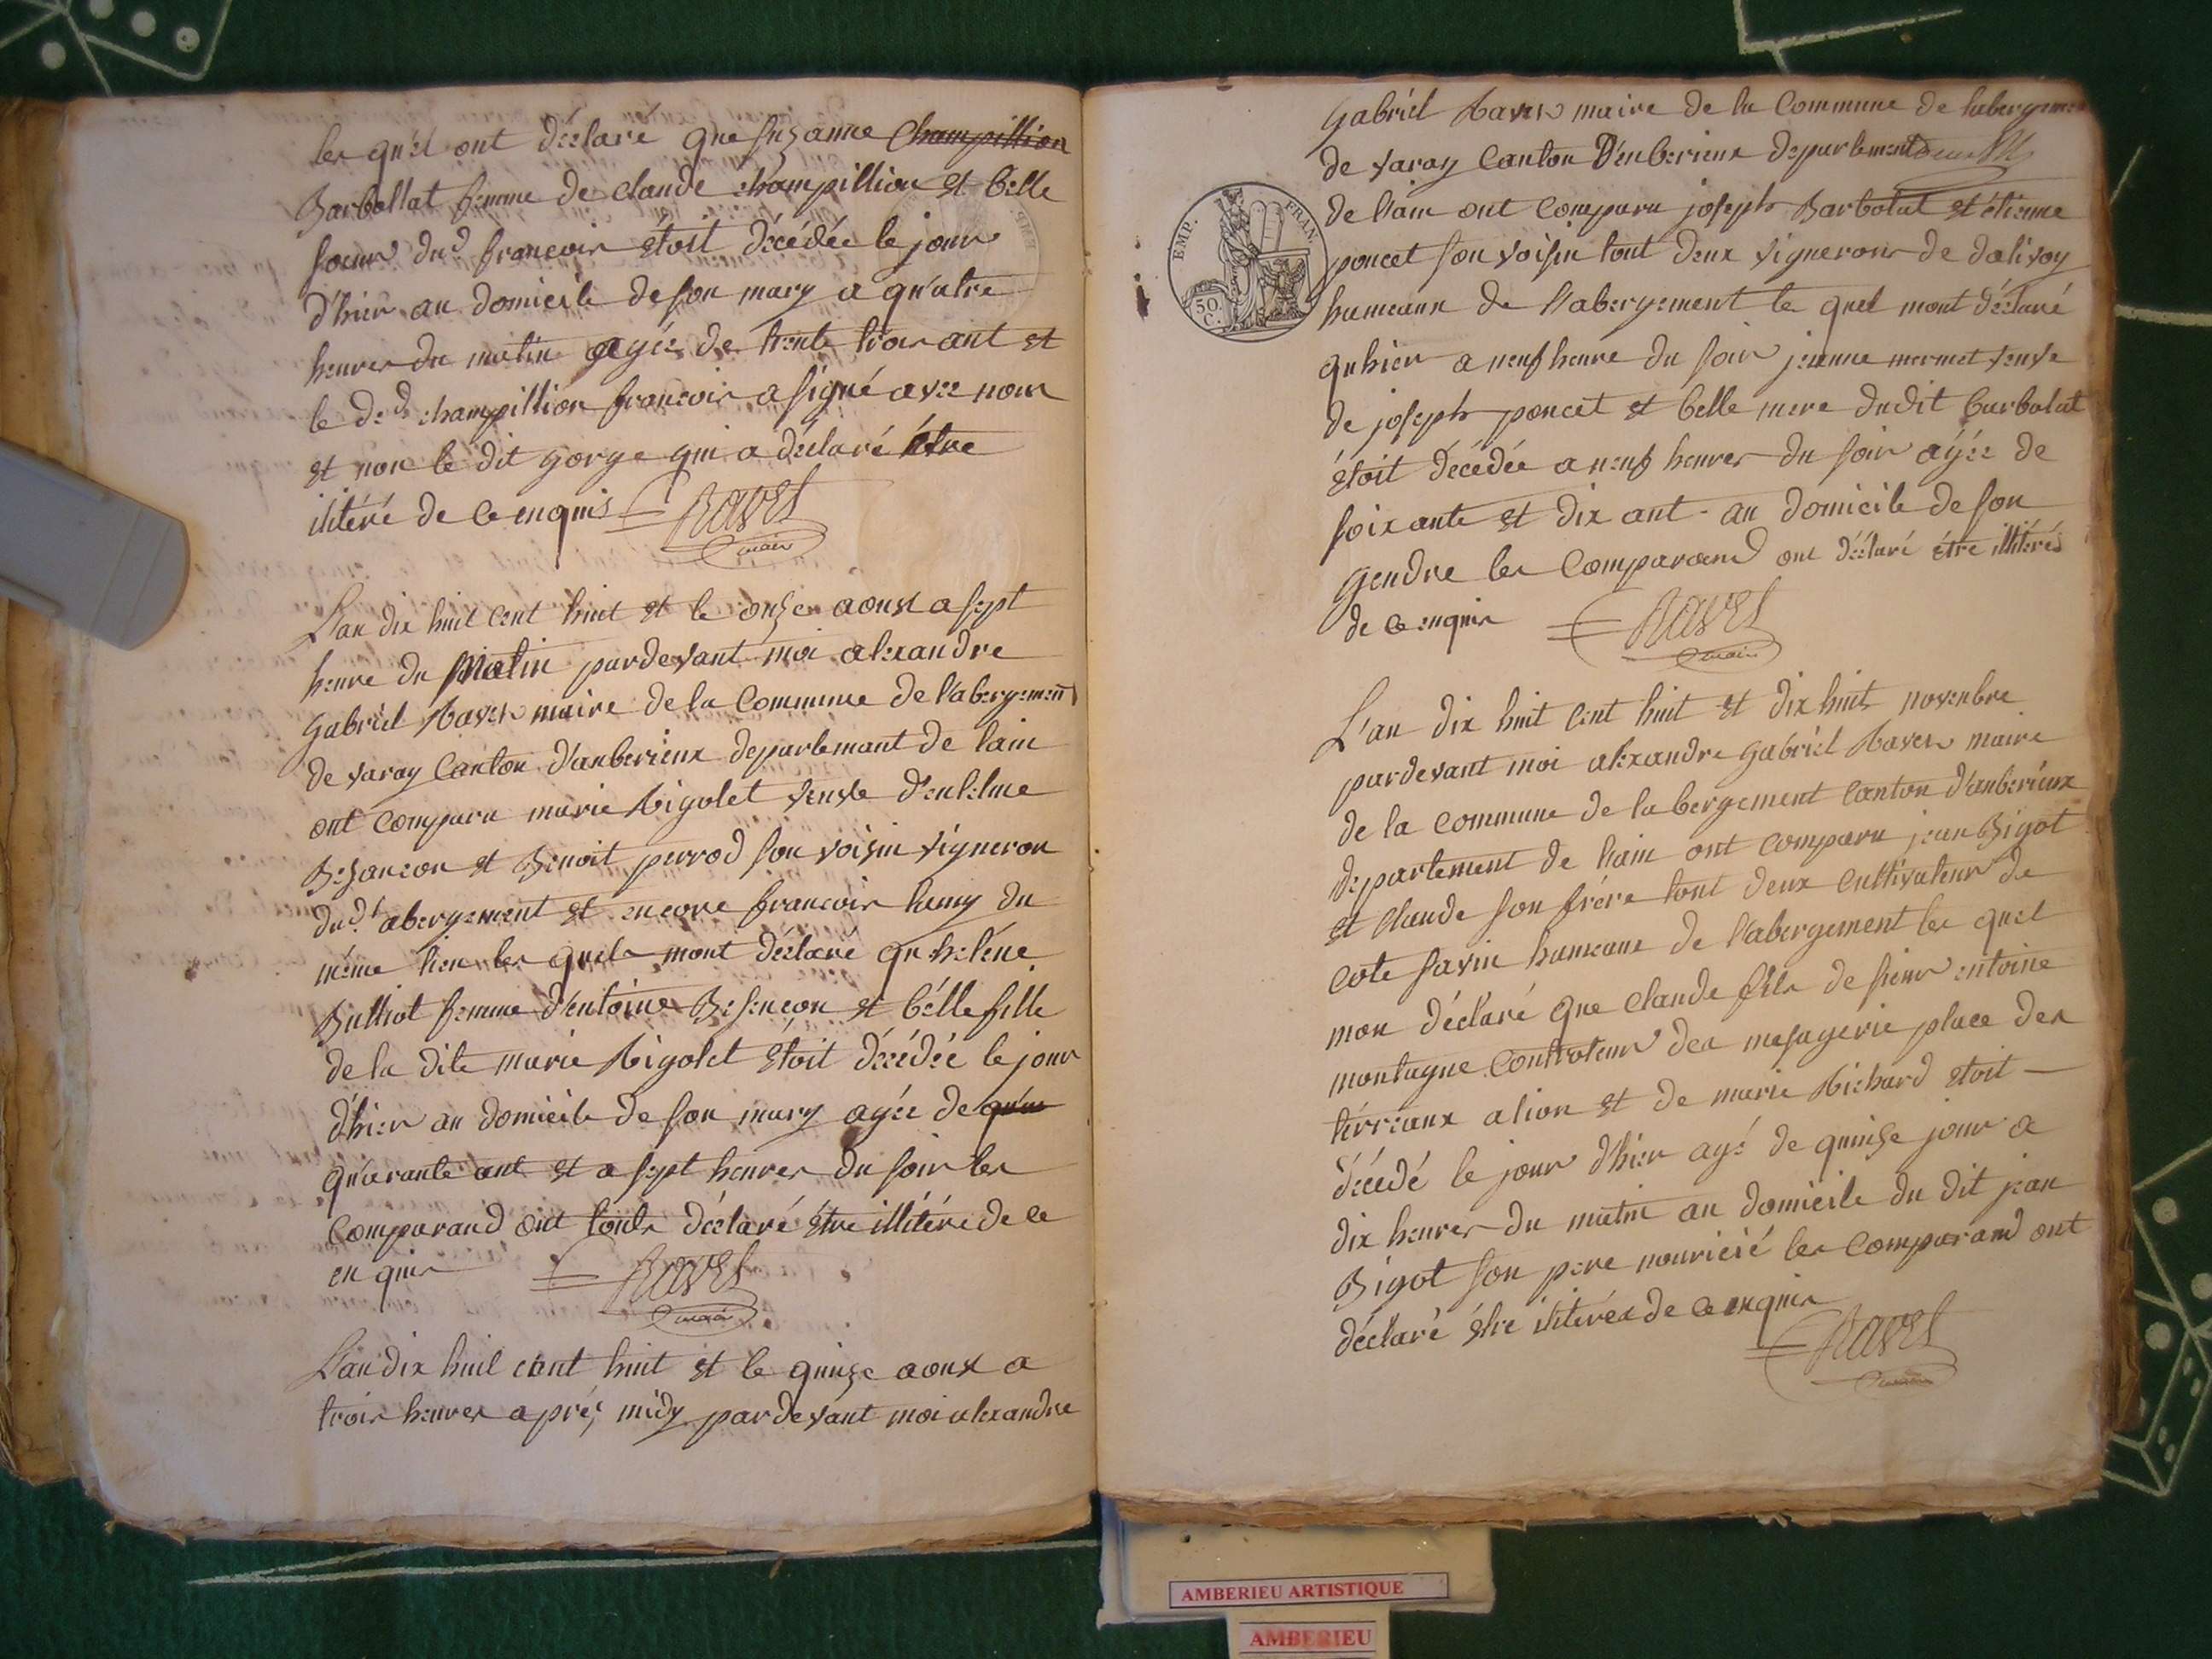 les quel ont déclaré que suzanne Champillion
Barbollat femme de claude champillion et belle
soeur du d francois étoit décédée le jour
d'hier au domicile de son mary a quatre
heures du matin agée de trente trois ant et
le d. d. champillion francois a signé avec nous
et non le dit gorge qui a déclaré être
ilitéré de ce enquis Ravet
maire
L'an dix huit cent huit et le onze aoust a sept
heure du Matin pardevant moi alexandre
Gabriel Ravet maire de la Commune de l'abergement
de varay Canton d'anberieux departemant de lain
ont comparu marie Rigolet veuve d'enselme
Besancon et Benoit perrod son voisin vigneron
dud.t abergement et encore francois humy du
même lieu les quels mont déclaré qu'helene
Bulliot femme d'entoine Besencon et bélle fille
de la dite marie Rigolet étoit décédée le jour
d'hier au domicile de son mary agée de
quarante ant et a sept heures du soir les
Comparand ont touts déclaré être illitéré de ce
en quis Ravet
maire
L'an dix huit cent huit et le quinze aoust a
trois heures aprés midy pardevant moi alexandre
Gabriel Ravet maire de la Commune de labergement
de varay Canton D'enberieux departement
de l'ain ont comparu joseph Barbolat et étienne
poncet son voisin tout deux vignerons de dalivoy
humeaux de l'abergement le quel mont déclaré
qu'hier a neuf heure du soir jeanne mermet veuve
de joseph poncet et belle mere dudit barbolat
étoit décédée a neuf heures du soir agée de
soixante et dix ant - au domicile de son
gendre les Comparand ont déclaré être illitérés
de ce enquis Ravet
maire
EMP. FRAN.
50 C.
L'an dix huit cent huit et dix huit novenbre
pardevant moi alexandre Gabriel Ravet maire
de la commune de labergement canton d'anberieux
departement de l'ain ont comparu jean Bigot
et Claude son frére tout deux Cultivateur de
cote savin humeaux de l'abergement les quel
mon déclaré que Claude fils de sieur entoine
montagne Controleur des mesagerie place des
térreaux a lion et de marie Richard étoit -
décédé le jour d'hier agé de quinze jour a
dix heures du matin au domicile du dit jean
Bigot son pere nouricié les Comparand ont
déclaré étre ilitérés de ce enquis
Ravet
maire
AMBERIEU ARTISTIQUE
AMBERIEU